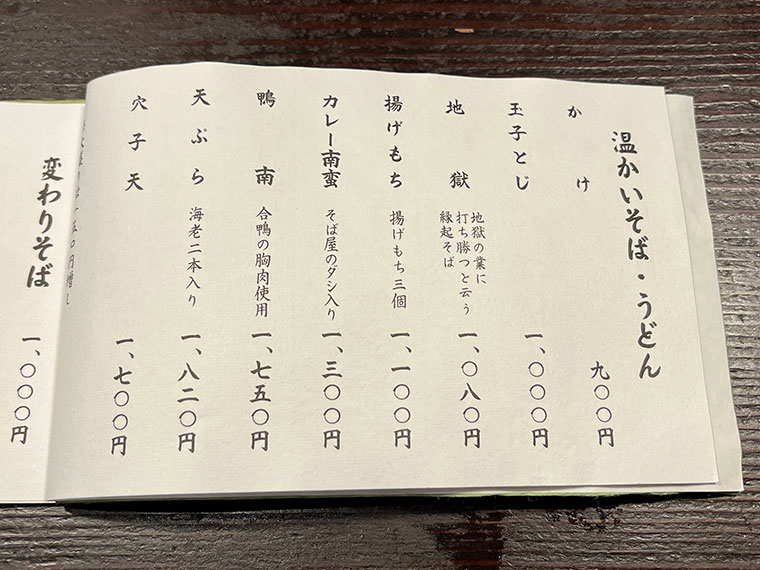 温かいそば・うどん
かけ 九〇〇円
玉子とじ 一、〇〇〇円
地獄 地獄の業に 一、〇八〇円
打ち勝つと云う
縁起そば
揚げもち 揚げもち三個 一、一〇〇円
カレー南蛮 そば屋のダシ入り 一、三〇〇円
鴨南 合鴨の胸肉使用 一、七五〇円
天ぷら 海老二本入り 一、八二〇円
穴子天 一、七〇〇円
一五〇円増し
変わりそば 一、〇〇〇円